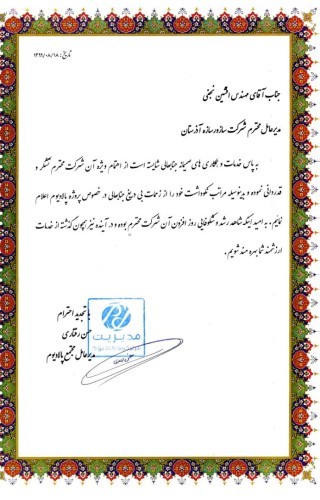 تاریخ: ۱۳۹۲/۰۸/۱۸
جناب آقای مهندس افشین نجفی
مدیرعامل محترم شرکت سازور سازه آذرستان
به پاس خدمات و همکاری های صمیمانه جنابعالی شایسته است از اهتمام ویژه آن شرکت محترم تشکر و
قدردانی نموده و بدینوسیله مراتب نکوداشت خود را از زحمات بی دریغ جنابعالی در خصوص پروژه پالادیوم اعلام
نمایم. به امید اینکه شاهد رشد و شکوفایی روز افزون آن شرکت محترم بوده و در آینده نیز همچون گذشته از خدمات
ارزشمند شما بهره مند شویم.
با تجدید احترام
حسن رفتاری
مدیرعامل مجتمع پالادیوم
مدیریت